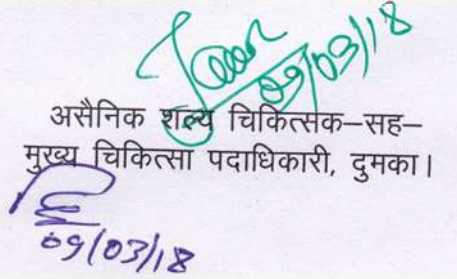 09/03/18
असैनिक शल्य चिकित्सक–सह–
मुख्य चिकित्सा पदाधिकारी, दुमका।
09/03/18